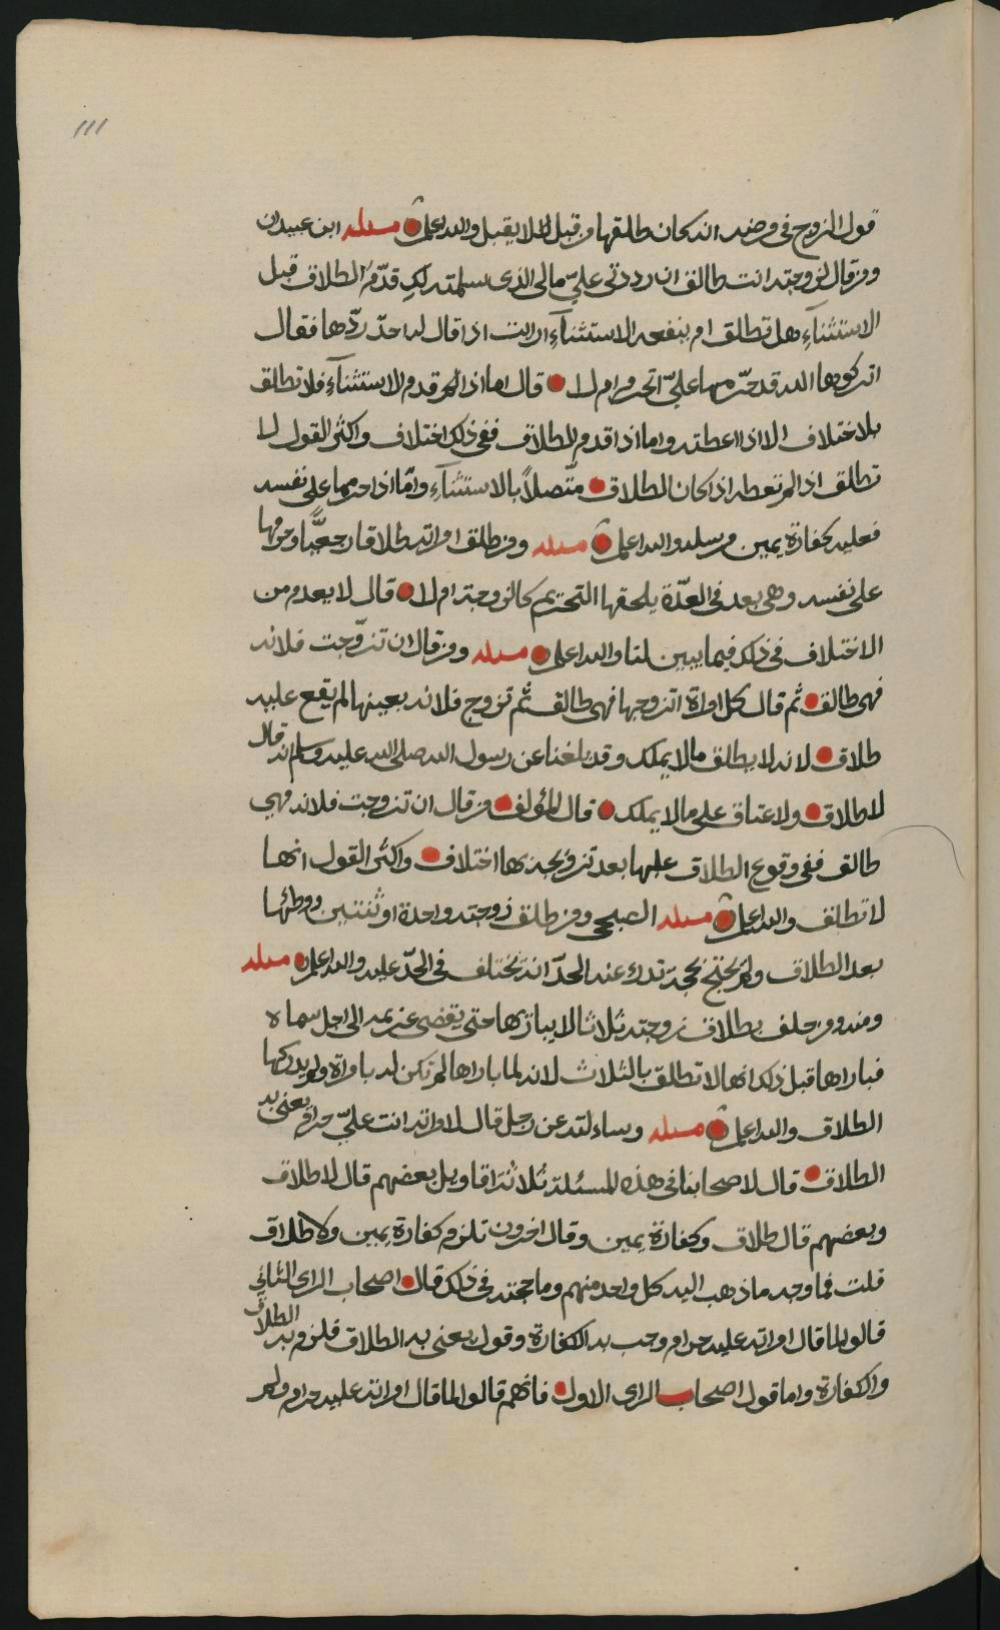 ١١١
قول الزوج في مرضه انه كان طلقها من قبل ام لا يقبل والله اعلم مسئلة ابن عبيدان
ومن قال لزوجته انت طالق ان رددتي عليّ مالي الذي سلمته لكِ قدّم الطلاق قبل
الاستثناءِ هل تطلق ام ينفعه الاستثناءِ ارايت اذا قال له احد ردّها فقال
اتركوها الله قد حرّمها عليّ اتحرم ام لا قال اما اذا قدم الاستثناءِ فلا تطلق
بلا اختلاف الا اذا اعطته واما اذا قدم الطلاق ففي ذلك اختلاف واكثر القول لا
تطلق اذا لم تعطه اذا كان الطلاق متّصلاً بالاستثناءِ وامّا اذا حرمها على نفسه
فعليه كفارة يمين مرسله والله اعلم مسئلة ومن طلق امراته طلاقا رجعيًّا وحرمها
على نفسه وهي بعد في العدّة يلحقها التحريم كالزوجة ام لا قال لا يعدم من
الاختلاف في ذلك فيما يبين لنا والله اعلم مسئلة ومن قال ان تزوّجت فلانه
فهي طالق ثم قال كل امراة اتزوجها فهي طالق ثم تزوج فلانه بعينها لم يقع عليه
طلاق لانه لا يطلق ما لا يملك وقد بلغنا عن رسول الله صلى الله عليه وسلم انه قال
لا طلاق ولا عتاق على ما لا يملك قال المؤلف من قال ان تزوجت فلانه فهي
طالق ففي وقوع الطلاق عليها بعد تزويجه بها اختلاف واكثر القول انها
لا تطلق والله اعلم مسئلة الصبحي ومن طلق زوجته واحدة او ثنتين ووطئها
بعد الطلاق ولم يحتج بحجة تدرء عنه الحدّ انه يختلف في الحدّ عليه والله اعلم مسئلة
ومنه ومن حلف بطلاق زوجته ثلاثا لا يباريها حتى يقضي غريمه الى اجل سماه
فباراها قبل ذلك انها لا تطلق بالثلاث لانه لما باراها لم تكن له بامراة ولم يدركها
الطلاق والله اعلم مسئلة وساءلته عن رجل قال لامراته انت عليّ حرام يعني به
الطلاق قال لاصحابنا في هذه المسئلة ثلاثة اقاويل بعضهم قال لا طلاق
وبعضهم قال طلاق وكفارة يمين وقال اخرون تلزمه كفارة يمين ولا طلاق
قلت فما وجه ما ذهب اليه كل واحد منهم وما حجته في ذلك قال اصحاب الراي الثاني
قالوا لما قال امراته عليه حرام وجب به الكفارة وقوله يعني به الطلاق فلزم به الطلاق
والكفارة واما قول اصحاب الراي الاول فانهم قالوا لما قال امراته عليه حرام ولم